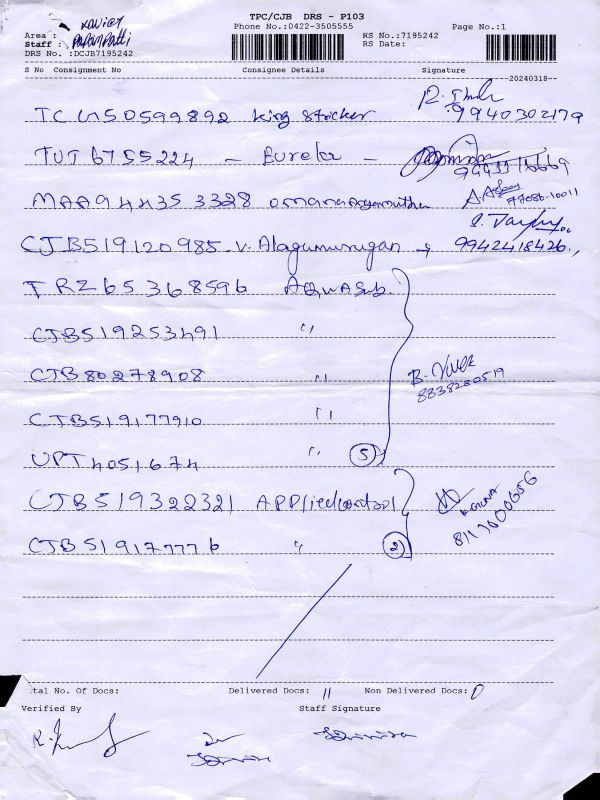 TPC/CJB DRS - P103
Phone No.:0422-3505555 Page No.:1
Area : xavier
Staff : Papampatti
DRS No. :DCJB7195242
RS No.:7195242
RS Date:
S No Consignment No Consignee Details Signature
20240318
TCU150599892 King Stricker 9940302179
TUT6755224 - Eureka -
MAA944353328 77086-10011
CJB519120985 - V. Alagumurugan 9942418426
TRZ65368596 AQUASub.
CJB519253491 "
CJB80278908 " B. 8838230519
CJB519177910 "
UPT4051674 " 5
CJB519322321 APPliedcontrol
CJB519177776 " 2
tal No. Of Docs: Delivered Docs: 11 Non Delivered Docs: 0
Verified By Staff Signature